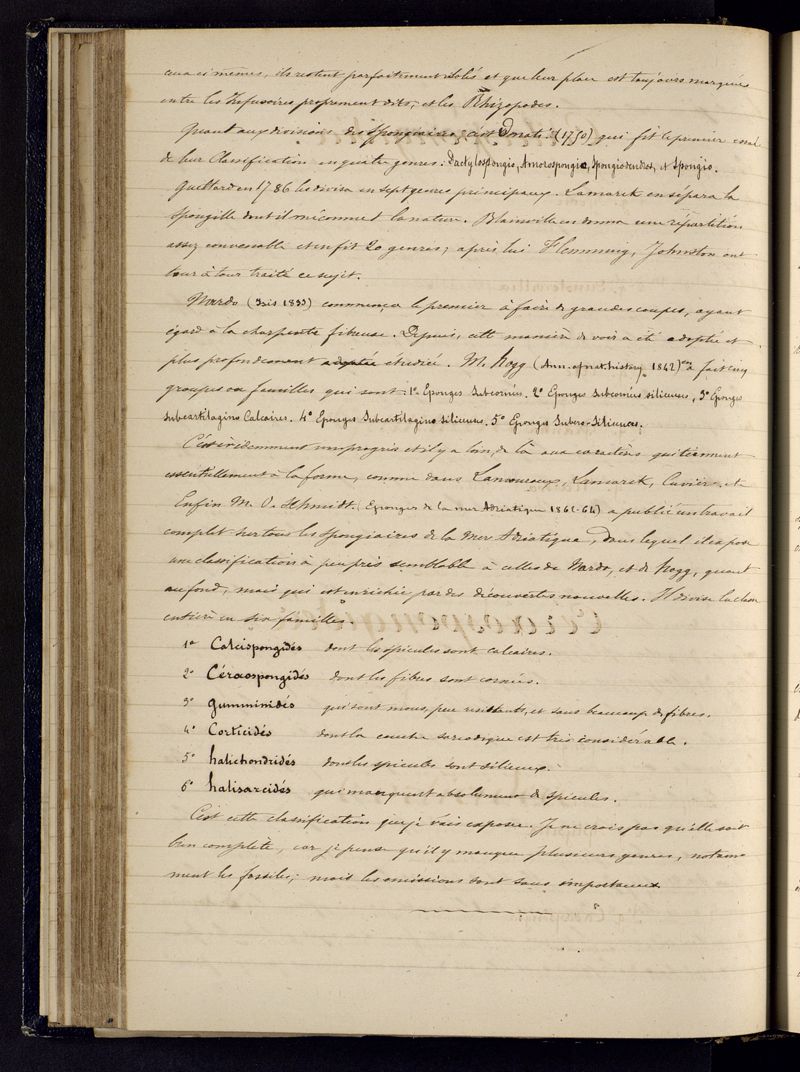 ceux ci mêmes, ils restent parfaitement isolés et que leur place est toujours marquée
entre les Infusoires proprement dits, et les Rhizopodes.
Quant aux divisions des Spongiaires, c'est Donati (1750) qui fit le premier essai
de leur Classification en quatre genres: Dactylospongia, Amorospongia, Spongiodendros, et Spongia.
Guettard en 1786 les divisa en sept genres principaux. Lamarck en sépara la
Spongille dont il méconnut la nature. Blainville en donna une répartition
assez convenable et en fit 20 genres; après lui Flemming, Johnston ont
tour à tour traité ce sujet.
Nardo (Isis 1833) commença le premier à faire de grandes coupes, ayant
égard à la charpente fibreuse. Depuis, cette manière de voir a été adoptée et
plus profondément adoptée étudiée. M. Hogg (Ann. of nat. history 1842) en a fait cinq
groupes ou familles qui sont: 1º Eponges Subcornées. 2º Eponges Subcornées siliceuses, 3º Eponges
Subcartilagino Calcaires. 4º Eponges Subcartilagino siliceuses. 5º Eponges Subero-Siliceuses.
C'est évidemment un progrès et il y a loin, de là aux caractères qui tiennent
essentiellement à la forme, comme dans Lamouroux, Lamarck, Cuvier, etc
Enfin M. O. Schmidt. (Eponges de la mer Adriatique 1862-64) a publié un travail
complet sur tous les Spongiaires de la Mer Adriatique, dans lequel il expose
une classification à peu près semblable à celles de Nardo, et de Hogg, quant
au fond, mais qui est enrichie par des découvertes nouvelles. Il divise la classe
entière en six familles.
1º Calcispongidés dont les spicules sont calcaires.
2º Céraospongidés dont les fibres sont cornées.
3º gumminidés qui sont mous, peu résistants, et sans beaucoup de fibres.
4º Corticidés dont la couche sarcodique est très considérable.
5º halichondridés dont les spicules sont siliceux.
6º halisarcidés qui manquent absolument de spicules.
C'est cette classification que je vais exposer. Je ne crois pas qu'elle soit
bien complète, car je pense qu'il y manque plusieurs genres, notam
ment les fossiles; mais les omissions sont sans importance.